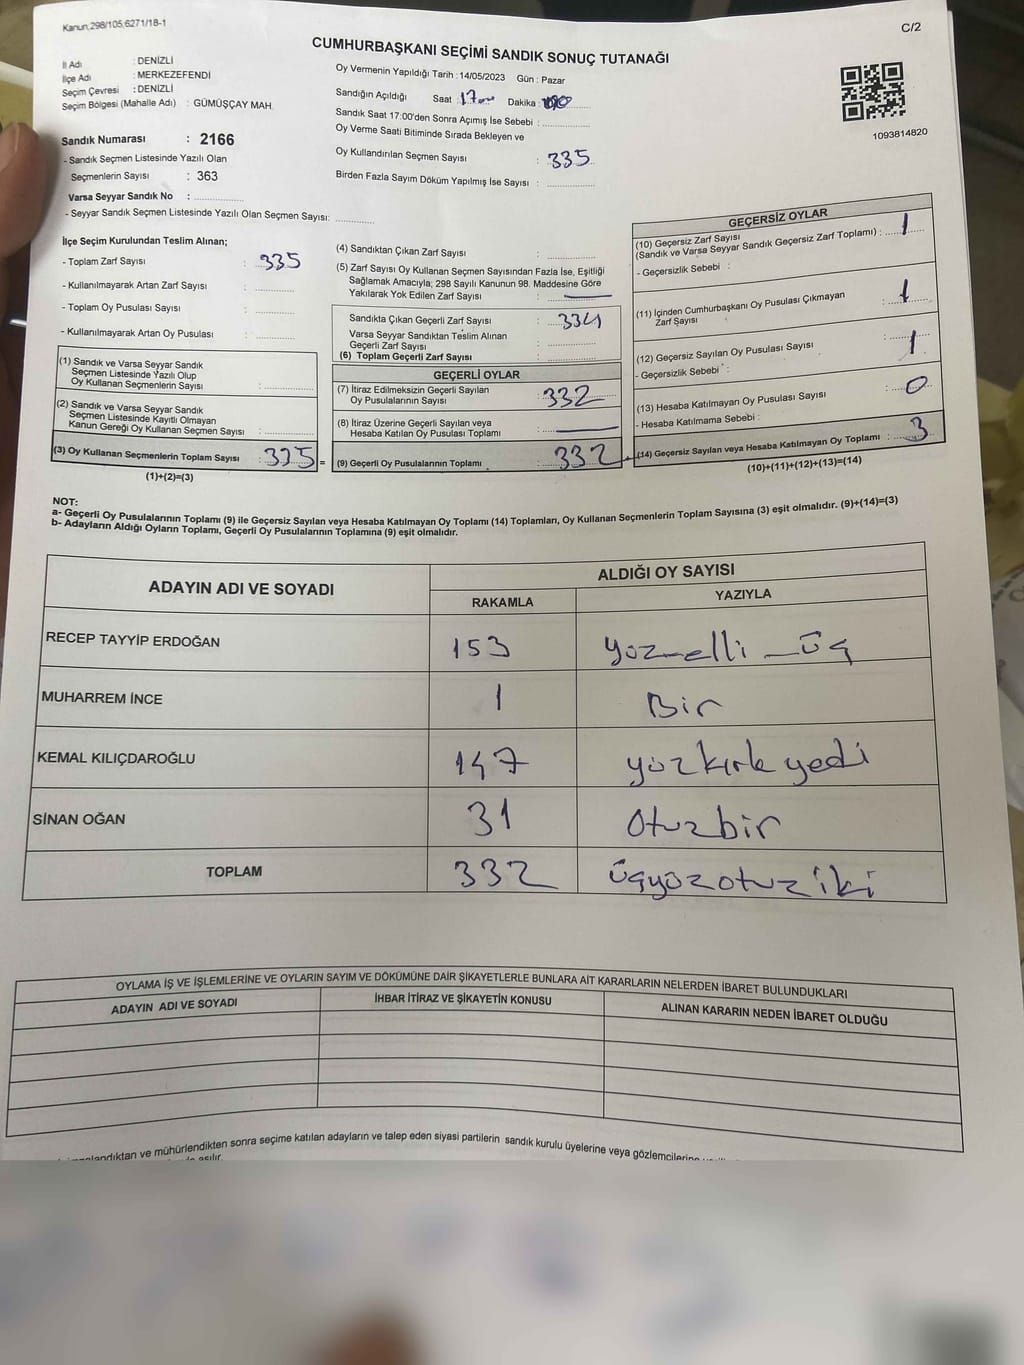 Kanun,298/105,6271/18-1
C/2
CUMHURBAŞKANI SEÇİMİ SANDIK SONUÇ TUTANAĞI
İl Adı : DENİZLİ
İlçe Adı : MERKEZEFENDİ
Seçim Çevresi : DENİZLİ
Seçim Bölgesi (Mahalle Adı) : GÜMÜŞÇAY MAH.
Sandık Numarası : 2166
- Sandık Seçmen Listesinde Yazılı Olan
Seçmenlerin Sayısı : 363
Varsa Seyyar Sandık No :
- Seyyar Sandık Seçmen Listesinde Yazılı Olan Seçmen Sayısı:
Oy Vermenin Yapıldığı Tarih : 14/05/2023 Gün : Pazar
Sandığın Açıldığı Saat : 17 Dakika :
Sandık Saat 17:00'den Sonra Açımış İse Sebebi :
Oy Verme Saati Bitiminde Sırada Bekleyen ve
Oy Kullandırılan Seçmen Sayısı : 335
Birden Fazla Sayım Döküm Yapılmış İse Sayısı :
1093814820
İlçe Seçim Kurulundan Teslim Alınan;
- Toplam Zarf Sayısı : 335
- Kullanılmayarak Artan Zarf Sayısı :
- Toplam Oy Pusulası Sayısı :
- Kullanılmayarak Artan Oy Pusulası :
(1) Sandık ve Varsa Seyyar Sandık
Seçmen Listesinde Yazılı Olup
Oy Kullanan Seçmenlerin Sayısı :
(2) Sandık ve Varsa Seyyar Sandık
Seçmen Listesinde Kayıtlı Olmayan
Kanun Gereği Oy Kullanan Seçmen Sayısı :
(3) Oy Kullanan Seçmenlerin Toplam Sayısı : 335 =
(1)+(2)=(3)
(4) Sandıktan Çıkan Zarf Sayısı :
(5) Zarf Sayısı Oy Kullanan Seçmen Sayısından Fazla İse, Eşitliği
Sağlamak Amacıyla; 298 Sayılı Kanunun 98. Maddesine Göre
Yakılarak Yok Edilen Zarf Sayısı :
Sandıkta Çıkan Geçerli Zarf Sayısı : 334
Varsa Seyyar Sandıktan Teslim Alınan
Geçerli Zarf Sayısı :
(6) Toplam Geçerli Zarf Sayısı :
GEÇERLİ OYLAR
(7) İtiraz Edilmeksizin Geçerli Sayılan
Oy Pusulalarının Sayısı : 332
(8) İtiraz Üzerine Geçerli Sayılan veya
Hesaba Katılan Oy Pusulası Toplamı :
(9) Geçerli Oy Pusulalarının Toplamı : 332 +
GEÇERSİZ OYLAR
(10) Geçersiz Zarf Sayısı
(Sandık ve Varsa Seyyar Sandık Geçersiz Zarf Toplamı) : 1
- Geçersizlik Sebebi :
(11) İçinden Cumhurbaşkanı Oy Pusulası Çıkmayan
Zarf Sayısı : 1
(12) Geçersiz Sayılan Oy Pusulası Sayısı : 1
- Geçersizlik Sebebi :
(13) Hesaba Katılmayan Oy Pusulası Sayısı : 0
- Hesaba Katılmama Sebebi :
(14) Geçersiz Sayılan veya Hesaba Katılmayan Oy Toplamı : 3
(10)+(11)+(12)+(13)=(14)
NOT:
a- Geçerli Oy Pusulalarının Toplamı (9) ile Geçersiz Sayılan veya Hesaba Katılmayan Oy Toplamı (14) Toplamları, Oy Kullanan Seçmenlerin Toplam Sayısına (3) eşit olmalıdır. (9)+(14)=(3)
b- Adayların Aldığı Oyların Toplamı, Geçerli Oy Pusulalarının Toplamına (9) eşit olmalıdır.
ADAYIN ADI VE SOYADI
ALDIĞI OY SAYISI
RAKAMLA YAZIYLA
RECEP TAYYİP ERDOĞAN 153 yüz-elli-üç
MUHARREM İNCE 1 Bir
KEMAL KILIÇDAROĞLU 147 yüzkırk yedi
SİNAN OĞAN 31 Otuzbir
TOPLAM 332 üçyüzotuziki
OYLAMA İŞ VE İŞLEMLERİNE VE OYLARIN SAYIM VE DÖKÜMÜNE DAİR ŞİKAYETLERLE BUNLARA AİT KARARLARIN NELERDEN İBARET BULUNDUKLARI
ADAYIN ADI VE SOYADI İHBAR İTİRAZ VE ŞİKAYETİN KONUSU ALINAN KARARIN NEDEN İBARET OLDUĞU
ve mühürlendikten sonra seçime katılan adayların ve talep eden siyasi partilerin sandık kurulu üyelerine veya gözlemcilerine